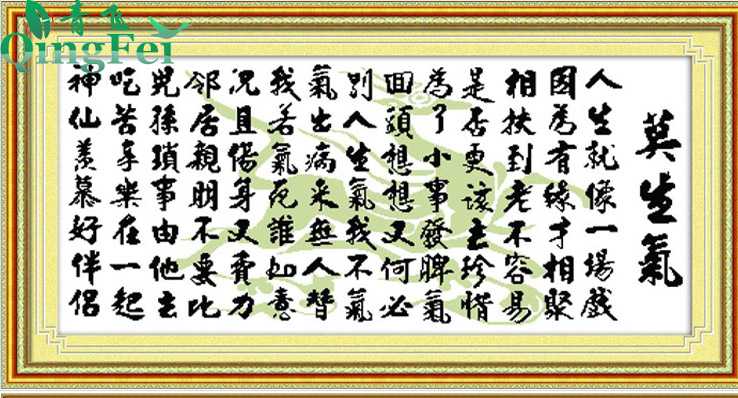 青飞
QingFei
莫生氣
人生就像一場戲
因為有緣才相聚
相扶到老不容易
是否更該去珍惜
為了小事發脾氣
回頭想想又何必
別人生氣我不氣
氣出病來無人替
我若氣死誰如意
況且傷身又費力
邻居親朋不要比
兒孫瑣事由他去
吃苦享樂在一起
神仙羨慕好伴侶